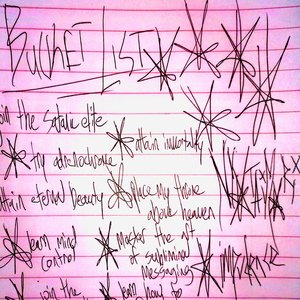 BUCKET LIST
join the satanic elite
try adrenochrome!
attain immortality
attain eternal beauty
place my throne
above heaven
learn mind
control
master the art
of subliminal
messaging
join the
learn how to